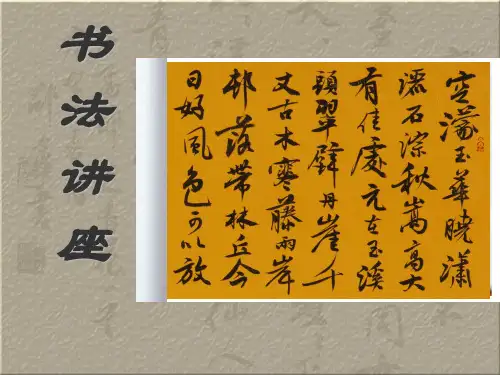 书法讲座
空濛玉華曉瀟
灑石淙秋嵩高大
有佳處元在玉溪
頭翠壁丹崖千
丈古木寒藤兩岸
邨落帶林丘今
日好風色可以放